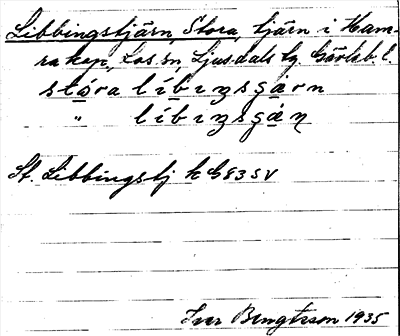 Libbingstjärn, Stora, tjärn i Ham-
ra kap, Los sn, Ljusdals tg. Gävleb. l.
stóra líbıŋsʒärn
" líbıŋsʒäɳ
St. Libbingstj k G83 SV
Iver Bengtsson 1935